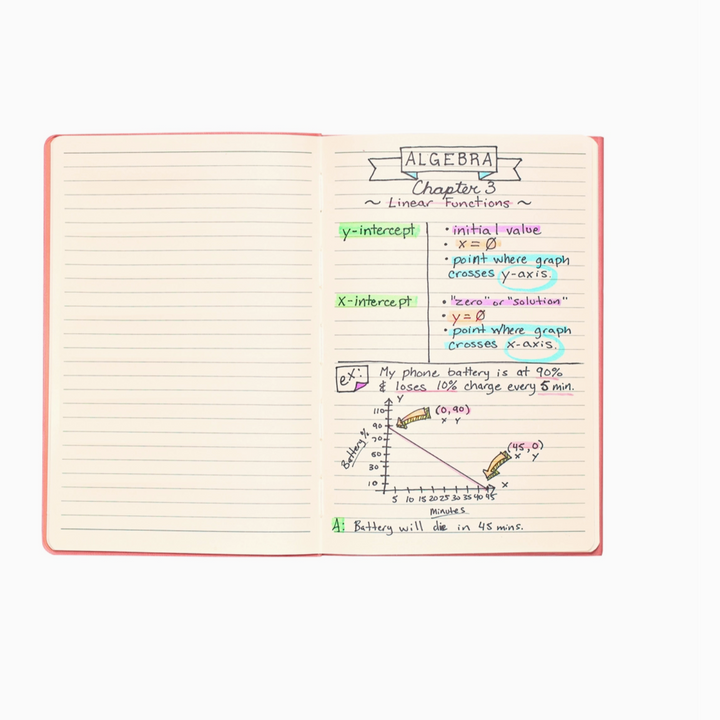 ALGEBRA
Chapter 3
~ Linear Functions ~
y-intercept
• initial value
• x = Ø
• point where graph
crosses y-axis.
x-intercept
• "zero" or "solution"
• y = Ø
• point where graph
crosses x-axis.
ex:
My phone battery is at 90%
& loses 10% charge every 5 min.
Y
110
90
70
50
30
10
Battery %
(0,90)
x y
(45,0)
x y
x
5 10 15 20 25 30 35 40 45
minutes
A: Battery will die in 45 mins.